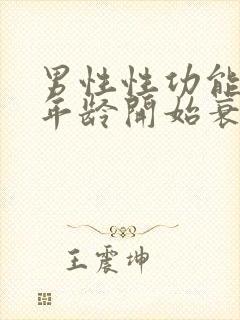 男性性功能
年龄開始衰
王震坤